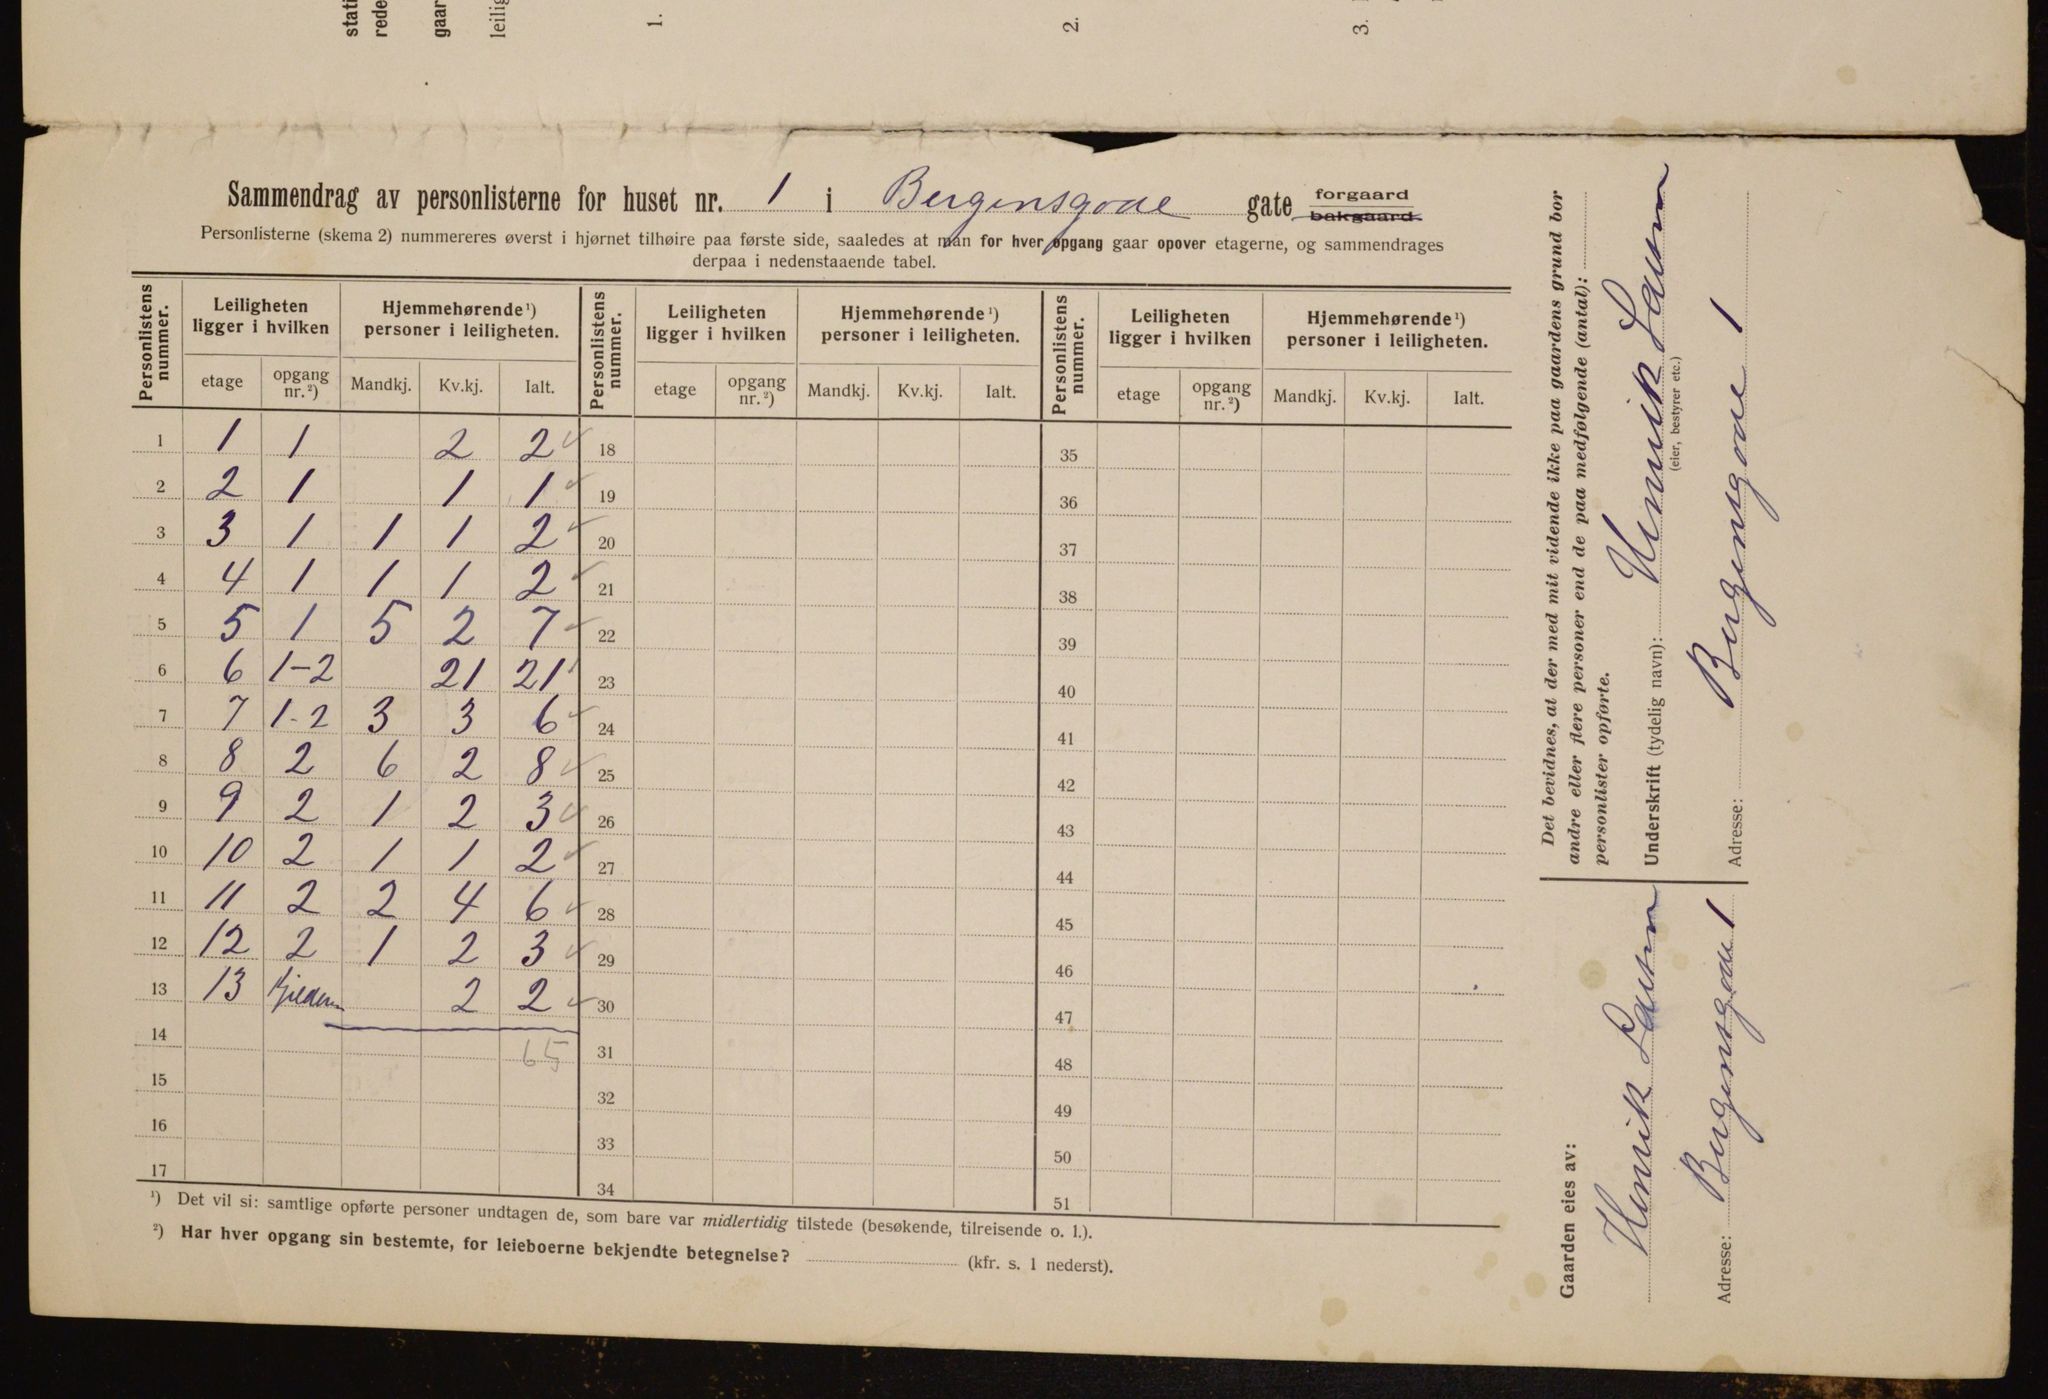 stati
rede
gaar
leilig
1.
2.
3.
Sammendrag av personlisterne for huset nr. 1 i Bergensgade gate forgaard bakgaard
Personlisterne (skema 2) nummereres øverst i hjørnet tilhøire paa første side, saaledes at man for hver opgang gaar opover etagerne, og sammendrages
derpaa i nedenstaaende tabel.
Personlistens nummer. Leiligheten ligger i hvilken Hjemmehørende¹) personer i leiligheten. Personlistens nummer. Leiligheten ligger i hvilken Hjemmehørende¹) personer i leiligheten. Personlistens nummer. Leiligheten ligger i hvilken Hjemmehørende¹) personer i leiligheten.
etage opgang nr.²) Mandkj. Kv.kj. Ialt. etage opgang nr.²) Mandkj. Kv.kj. Ialt. etage opgang nr.²) Mandkj. Kv.kj. Ialt.
1 1 1 2 2 18 35
2 2 1 1 1 19 36
3 3 1 1 1 2 20 37
4 4 1 1 1 2 21 38
5 5 1 5 2 7 22 39
6 6 1-2 21 21 23 40
7 7 1-2 3 3 6 24 41
8 8 2 6 2 8 25 42
9 9 2 1 2 3 26 43
10 10 2 1 1 2 27 44
11 11 2 2 4 6 28 45
12 12 2 1 2 3 29 46
13 13 2 2 30 47
14 65 31 48
15 32 49
16 33 50
17 34 51
¹) Det vil si: samtlige opførte personer undtagen de, som bare var midlertidig tilstede (besøkende, tilreisende o. l.).
²) Har hver opgang sin bestemte, for leieboerne bekjendte betegnelse? (kfr. s. 1 nederst).
Det bevidnes, at der med mit vidende ikke paa gaardens grund bor
andre eller flere personer end de paa medfølgende (antal):
personlister opførte.
Underskrift (tydelig navn): Henrik
(eier, bestyrer etc.)
Adresse: Bergensgade 1
Gaarden eies av:
Henrik
Adresse: Bergensgade 1